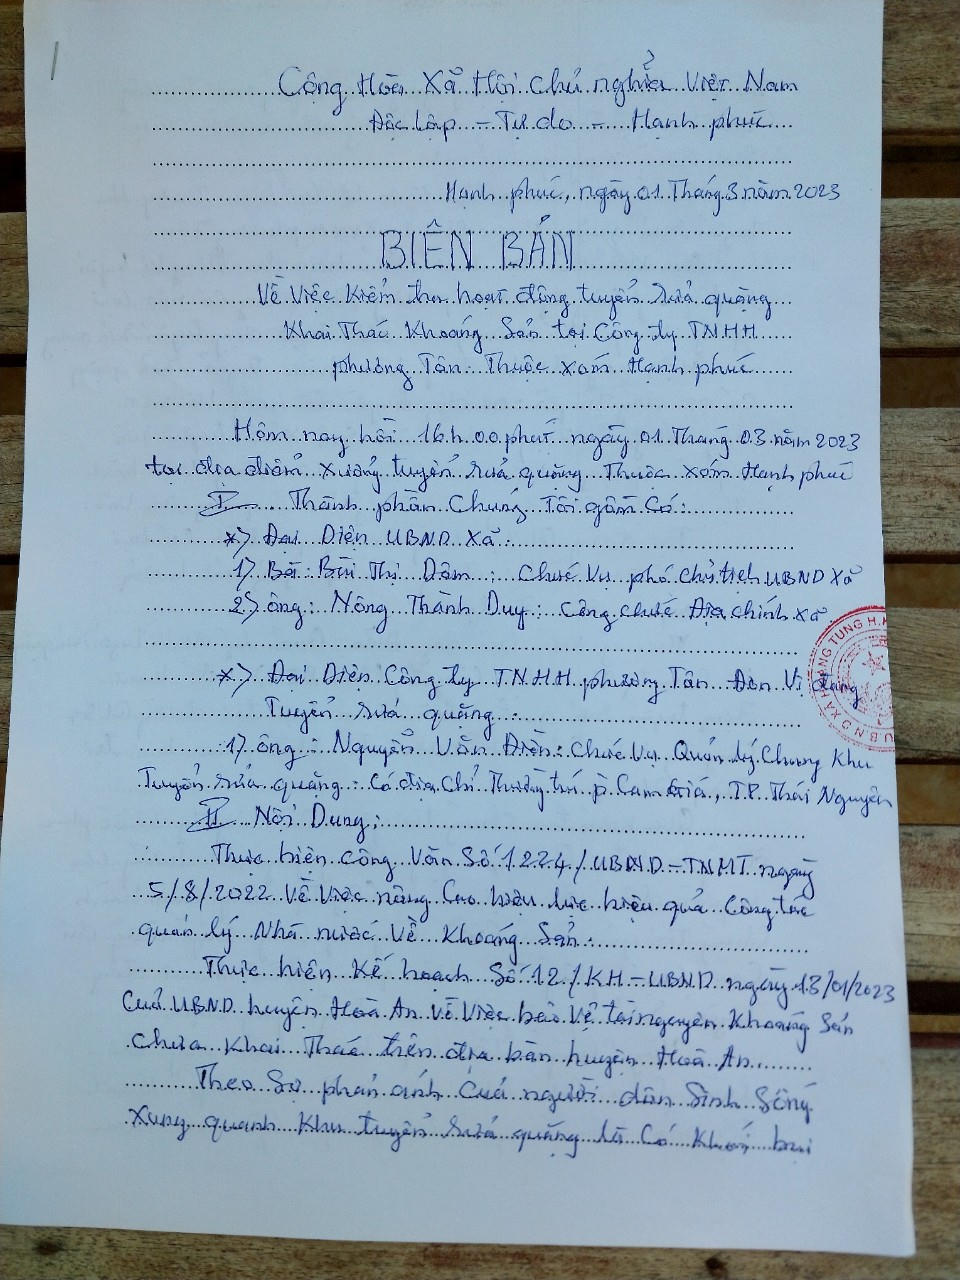 Cộng Hòa Xã Hội Chủ nghĩa Việt Nam
Độc lập - Tự do - Hạnh phúc
Hạnh phúc, ngày 01 Tháng 3 năm 2023
BIÊN BẢN
Về Việc Kiểm tra hoạt động tuyển rửa quặng
Khai Thác Khoáng Sản tại Công ty TNHH
phương Tân. Thuộc xóm Hạnh phúc
Hôm nay hồi 16h00 phút ngày 01 Tháng 03 năm 2023
tại địa điểm xưởng tuyển rửa quặng Thuộc xóm Hạnh phúc
I Thành phần Chúng Tôi gồm Có:
*) Đại Diện UBND Xã:
1) Bà: Bùi Thị Dâm: Chức Vụ phó chủ tịch UBND Xã
2) ông: Nông Thành Duy: Công chức Địa chính xã
*) Đại Diện Công ty TNHH phương Tân Đơn Vị đang
Tuyển rửa quặng:
1) ông: Nguyễn Văn Điền: Chức Vụ Quản lý Chung Khu
Tuyển rửa quặng: Có địa Chỉ Thường trú p. Cam Giá, TP. Thái Nguyên
II Nội Dung:
Thực hiện công Văn Số 1224/UBND-TNMT ngày
5/8/2022 Về Việc nâng Cao hiệu lực hiệu quả Công tác
quản lý Nhà nước Về Khoáng Sản.
Thực hiện Kế hoạch Số 12/KH-UBND ngày 13/01/2023
Của UBND huyện Hoà An Về Việc bảo Vệ tài nguyên Khoáng Sản
chưa Khai Thác trên địa bàn huyện Hoà An
Theo Sự phản ánh Của người dân Sinh Sống
Xung quanh Khu tuyển rửa quặng là Có Khói bụi
U.B.N.D XÃ HOÀNG TUNG H.H